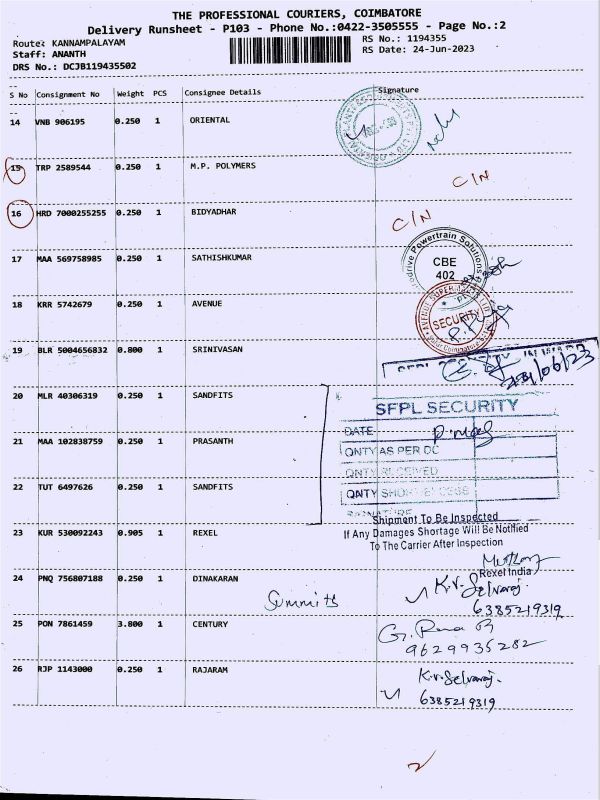 THE PROFESSIONAL COURIERS, COIMBATORE
Delivery Runsheet - P103 - Phone No.:0422-3505555 - Page No.:2
Route: KANNAMPALAYAM
RS No.: 1194355
Staff: ANANTH
RS Date: 24-Jun-2023
DRS No.: DCJB119435502
S No Consignment No Weight PCS Consignee Details Signature
14 VNB 906195 0.250 1 ORIENTAL
15 TRP 2589544 0.250 1 M.P. POLYMERS C/N
16 HRD 7000255255 0.250 1 BIDYADHAR C/N
Powertrain Solutions
17 MAA 569758985 0.250 1 SATHISHKUMAR CBE
402
18 KRR 5742679 0.250 1 AVENUE
SECURITY
19 BLR 5004656832 0.800 1 SRINIVASAN
20 MLR 40306319 0.250 1 SANDFITS
SFPL SECURITY
DATE
21 MAA 102838759 0.250 1 PRASANTH
QNTY AS PER DC
QNTY RECEIVED
22 TUT 6497626 0.250 1 SANDFITS
QNTY SHORT/EXCESS
Shipment To Be Inspected
23 KUR 530092243 0.905 1 REXEL
If Any Damages Shortage Will Be Notified
To The Carrier After Inspection
Rexel India
24 PNQ 756807188 0.250 1 DINAKARAN
K.V. Selvaraj.
Summits
6385219319
25 PON 7861459 3.800 1 CENTURY
9629935282
26 RJP 1143000 0.250 1 RAJARAM
K.V. Selvaraj.
6385219319
2